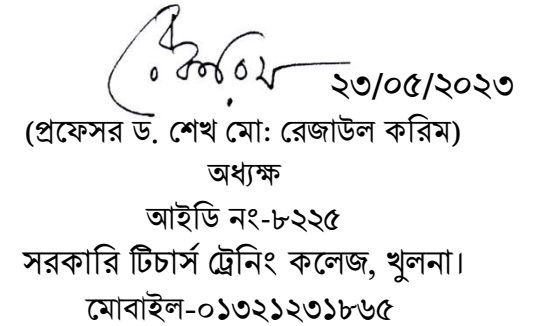 ২৩/০৫/২০২৩
(প্রফেসর ড. শেখ মো: রেজাউল করিম)
অধ্যক্ষ
আইডি নং-৮২২৫
সরকারি টিচার্স ট্রেনিং কলেজ, খুলনা।
মোবাইল-০১৩২১২৩১৮৬৫